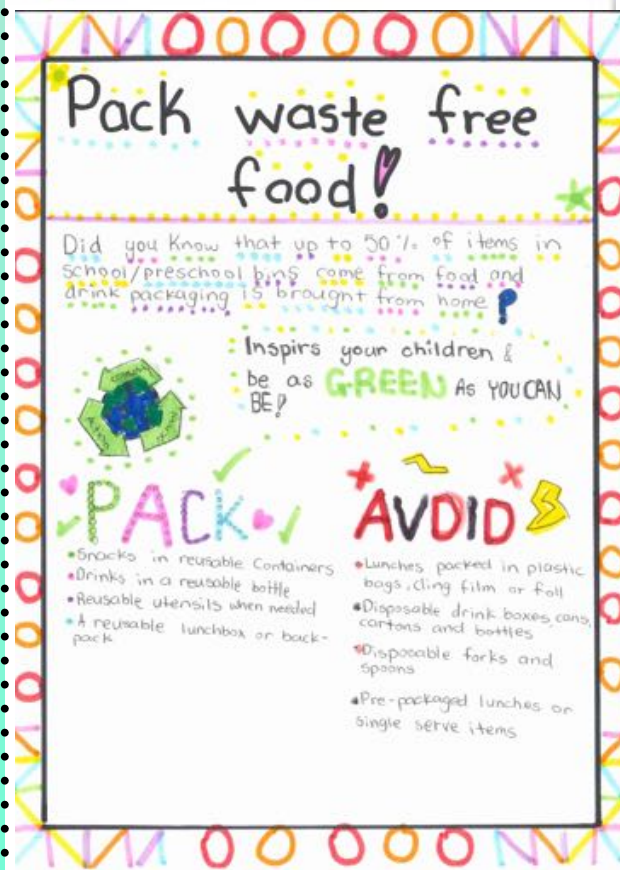 Pack waste free
food!
Did you Know that up to 50% of items in
school/preschool bins come from food and
drink packaging is brought from home?
Inspirs your children &
be as GREEN AS YOU CAN
BE!
PACK
• Snacks in reusable Containers
• Drinks in a reusable bottle
• Reusable utensils when needed
• A reusable lunchbox or back-
pack
AVOID
• Lunches packed in plastic
bags, cling film or foil
• Disposable drink boxes, cans,
cartons and bottles
• Disposable forks and
spoons
• Pre-packaged lunches or
single serve items